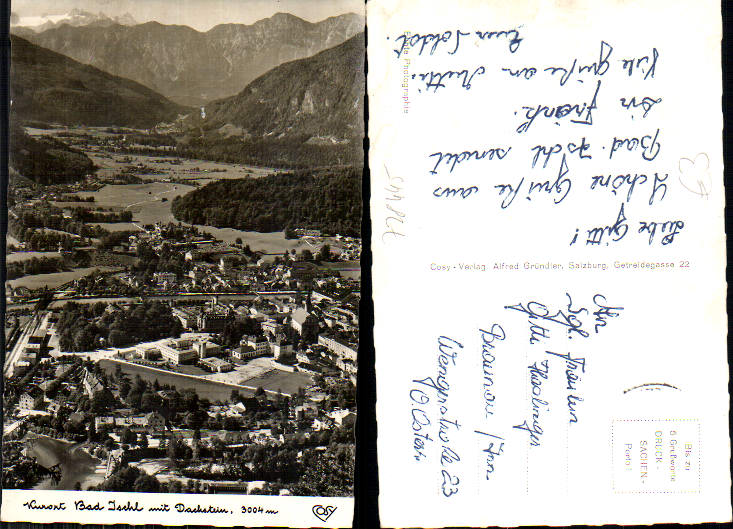 Kurort Bad Ischl mit Dachstein, 3004 m
Liebe Gitti!
Schöne Grüße aus
Bad-Ischl sendet
Dir Frank.
Viele Grüße an Mutti.
Euer Soldat.
Echte Photographie
Cosy-Verlag Alfred Gründler, Salzburg, Getreidegasse 22
An
Sgl. Fräulein
Gitti
Braunau / Inn
Wengerstraße 23
O. Österr.
Bis zu
5 Grußworte
DRUCK-
SACHEN-
Porto!